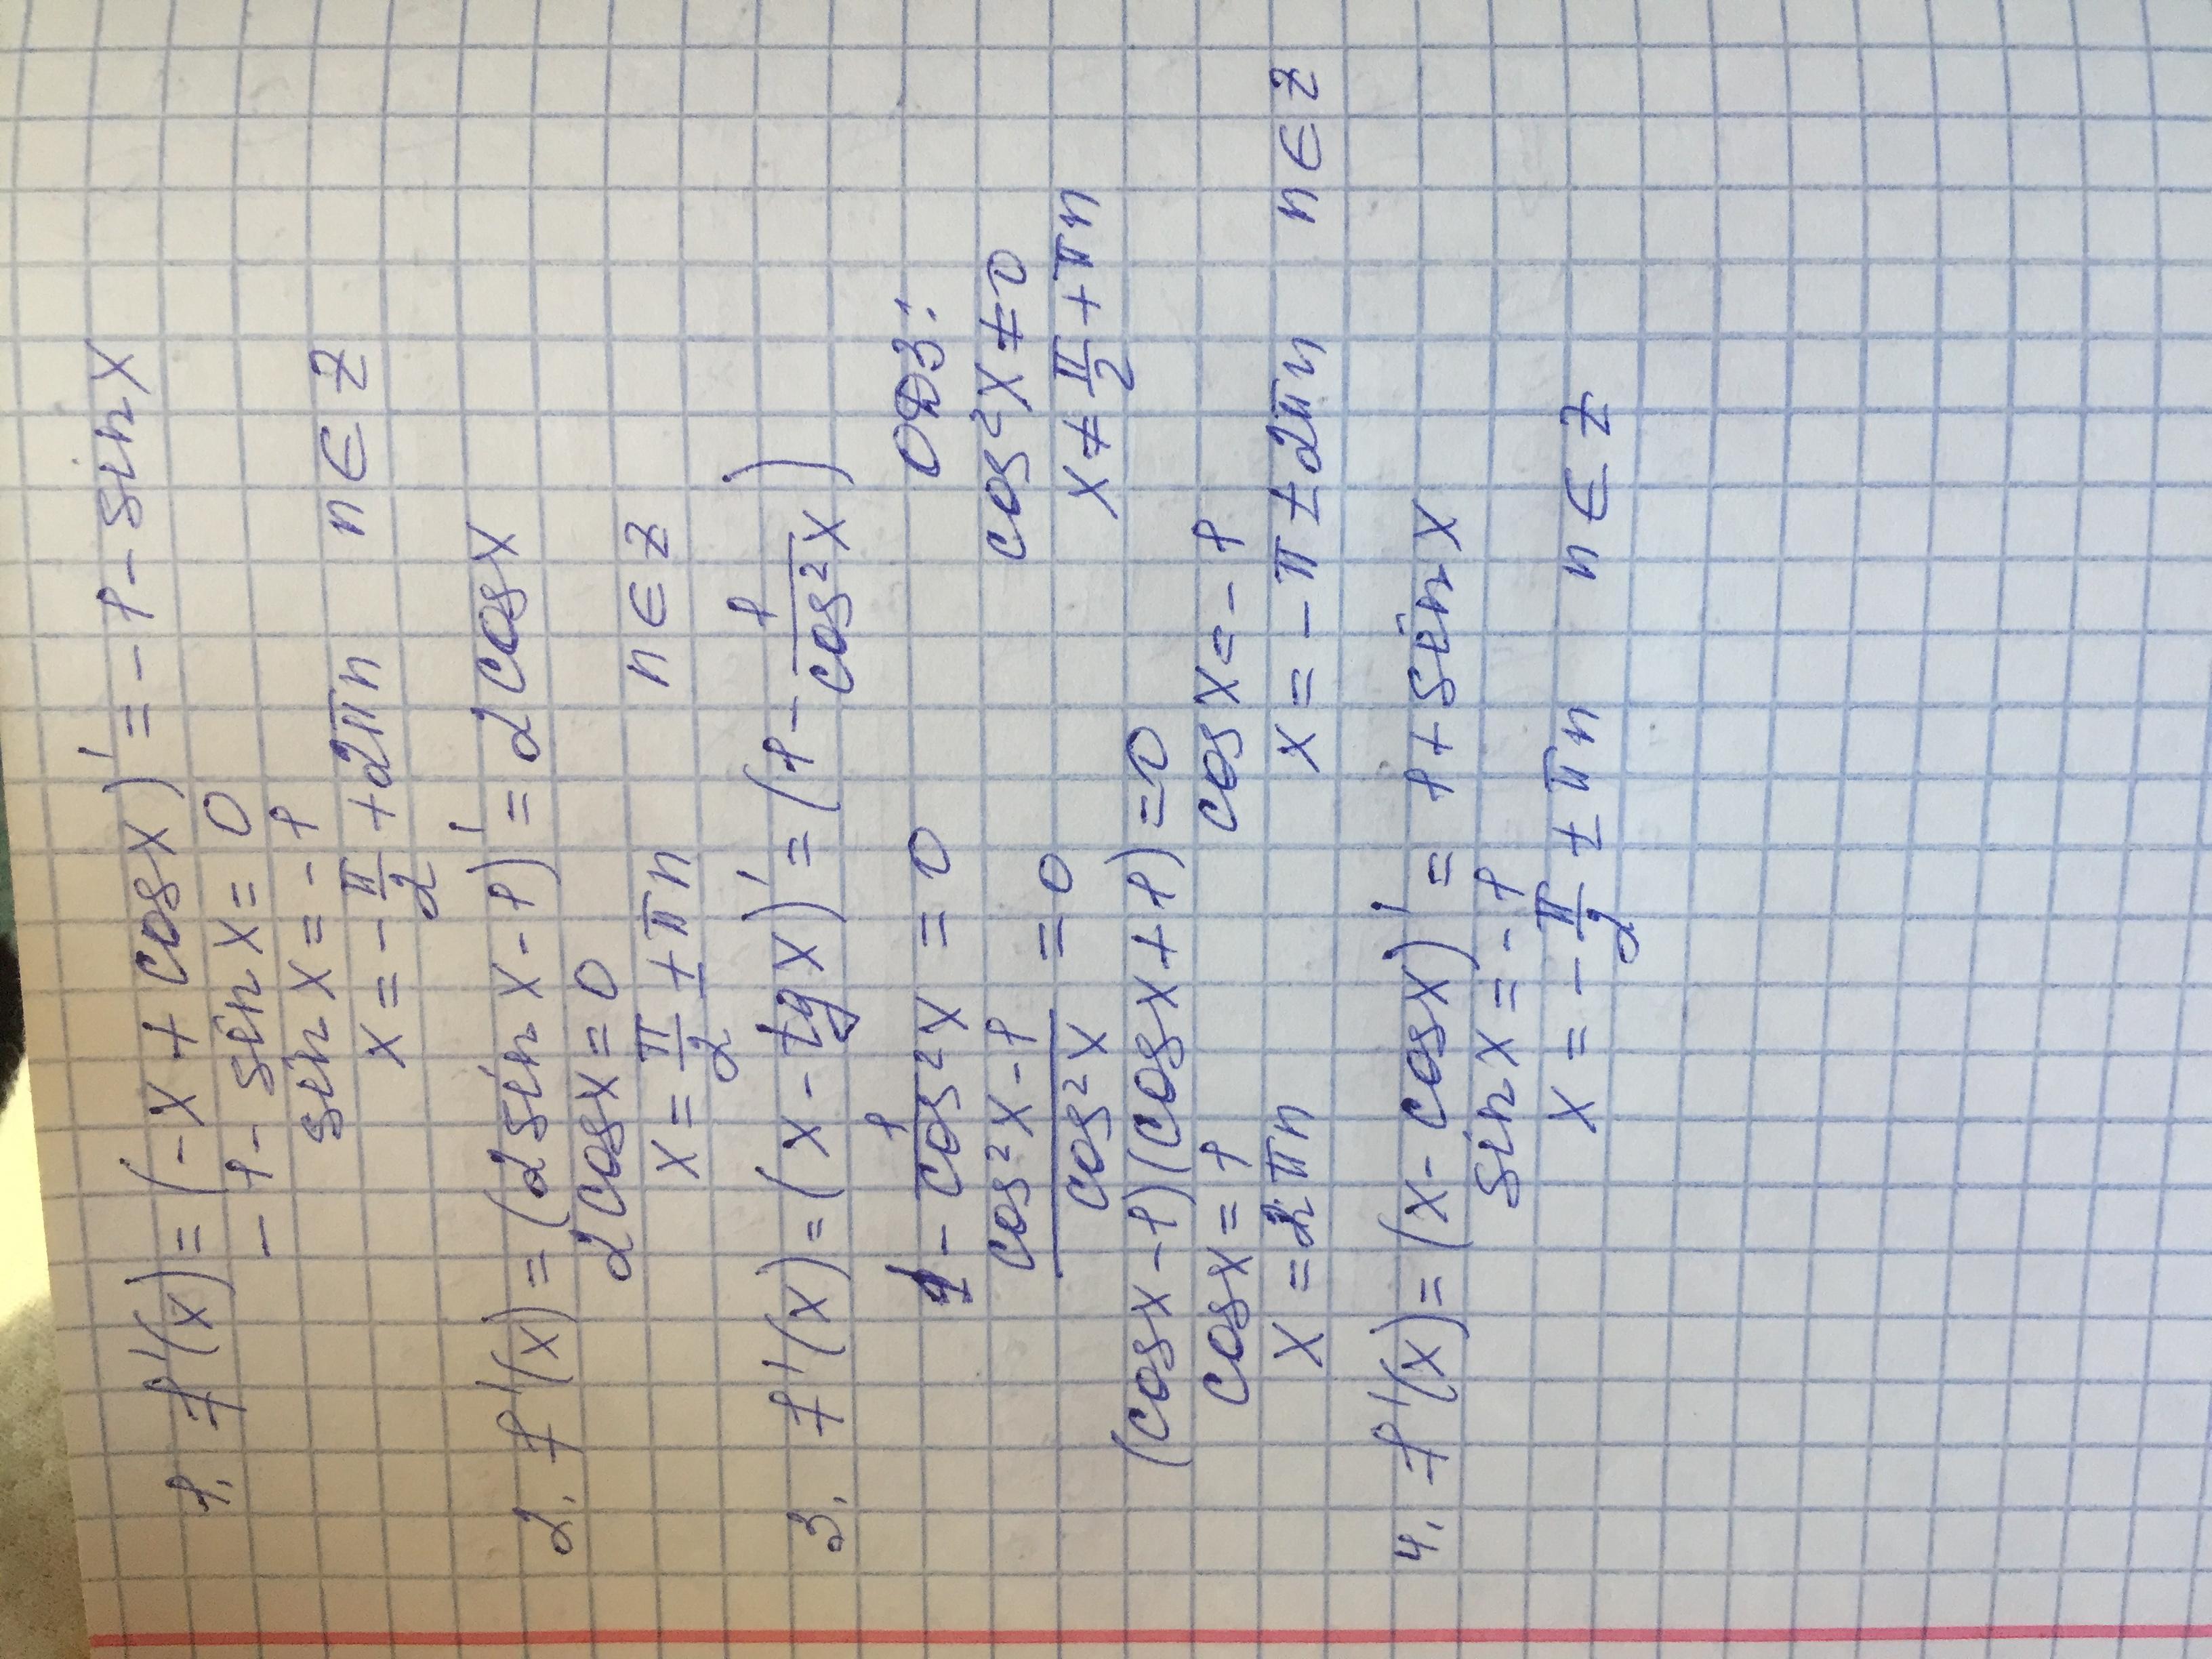 1. f'(x) = (-x + cos x)' = -1 - sin x
-1 - sin x = 0
sin x = -1
x = -π/2 + 2πn n ∈ Z
2. f'(x) = (2 sin x - 1)' = 2 cos x
2 cos x = 0
x = π/2 ± πn n ∈ Z
3. f'(x) = (x - tg x)' = (1 - 1/cos²x)
1 - 1/cos²x = 0 ОДЗ:
(cos²x - 1)/cos²x = 0 cos²x ≠ 0
x ≠ π/2 + πn
(cos x - 1)(cos x + 1) = 0
cos x = 1 cos x = -1
x = 2πn x = -π ± 2πn n ∈ Z
4. f'(x) = (x - cos x)' = 1 + sin x
sin x = -1
x = -π/2 ± πn n ∈ Z